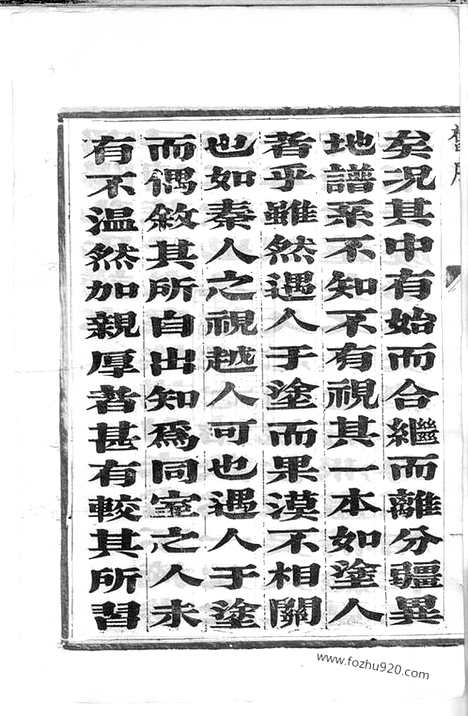 矣况其中有始而合繼而離分疆異
地譜系不知不有視其一本如塗人
者乎雖然遇人于塗而果漠不相關
也如秦人之視越人可也遇人于塗
而偶敘其所自出知為同室之人未
有不温然加親厚者甚有較其所習
www.fozhu920.com